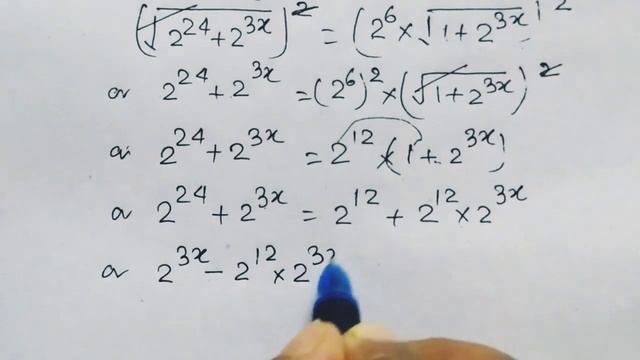 (√(2²⁴ + 2³ˣ))² = (2⁶ × √(1 + 2³ˣ))²
or 2²⁴ + 2³ˣ = (2⁶)² × (√(1 + 2³ˣ))²
or 2²⁴ + 2³ˣ = 2¹² × (1 + 2³ˣ)
or 2²⁴ + 2³ˣ = 2¹² + 2¹² × 2³ˣ
or 2³ˣ - 2¹² × 2³